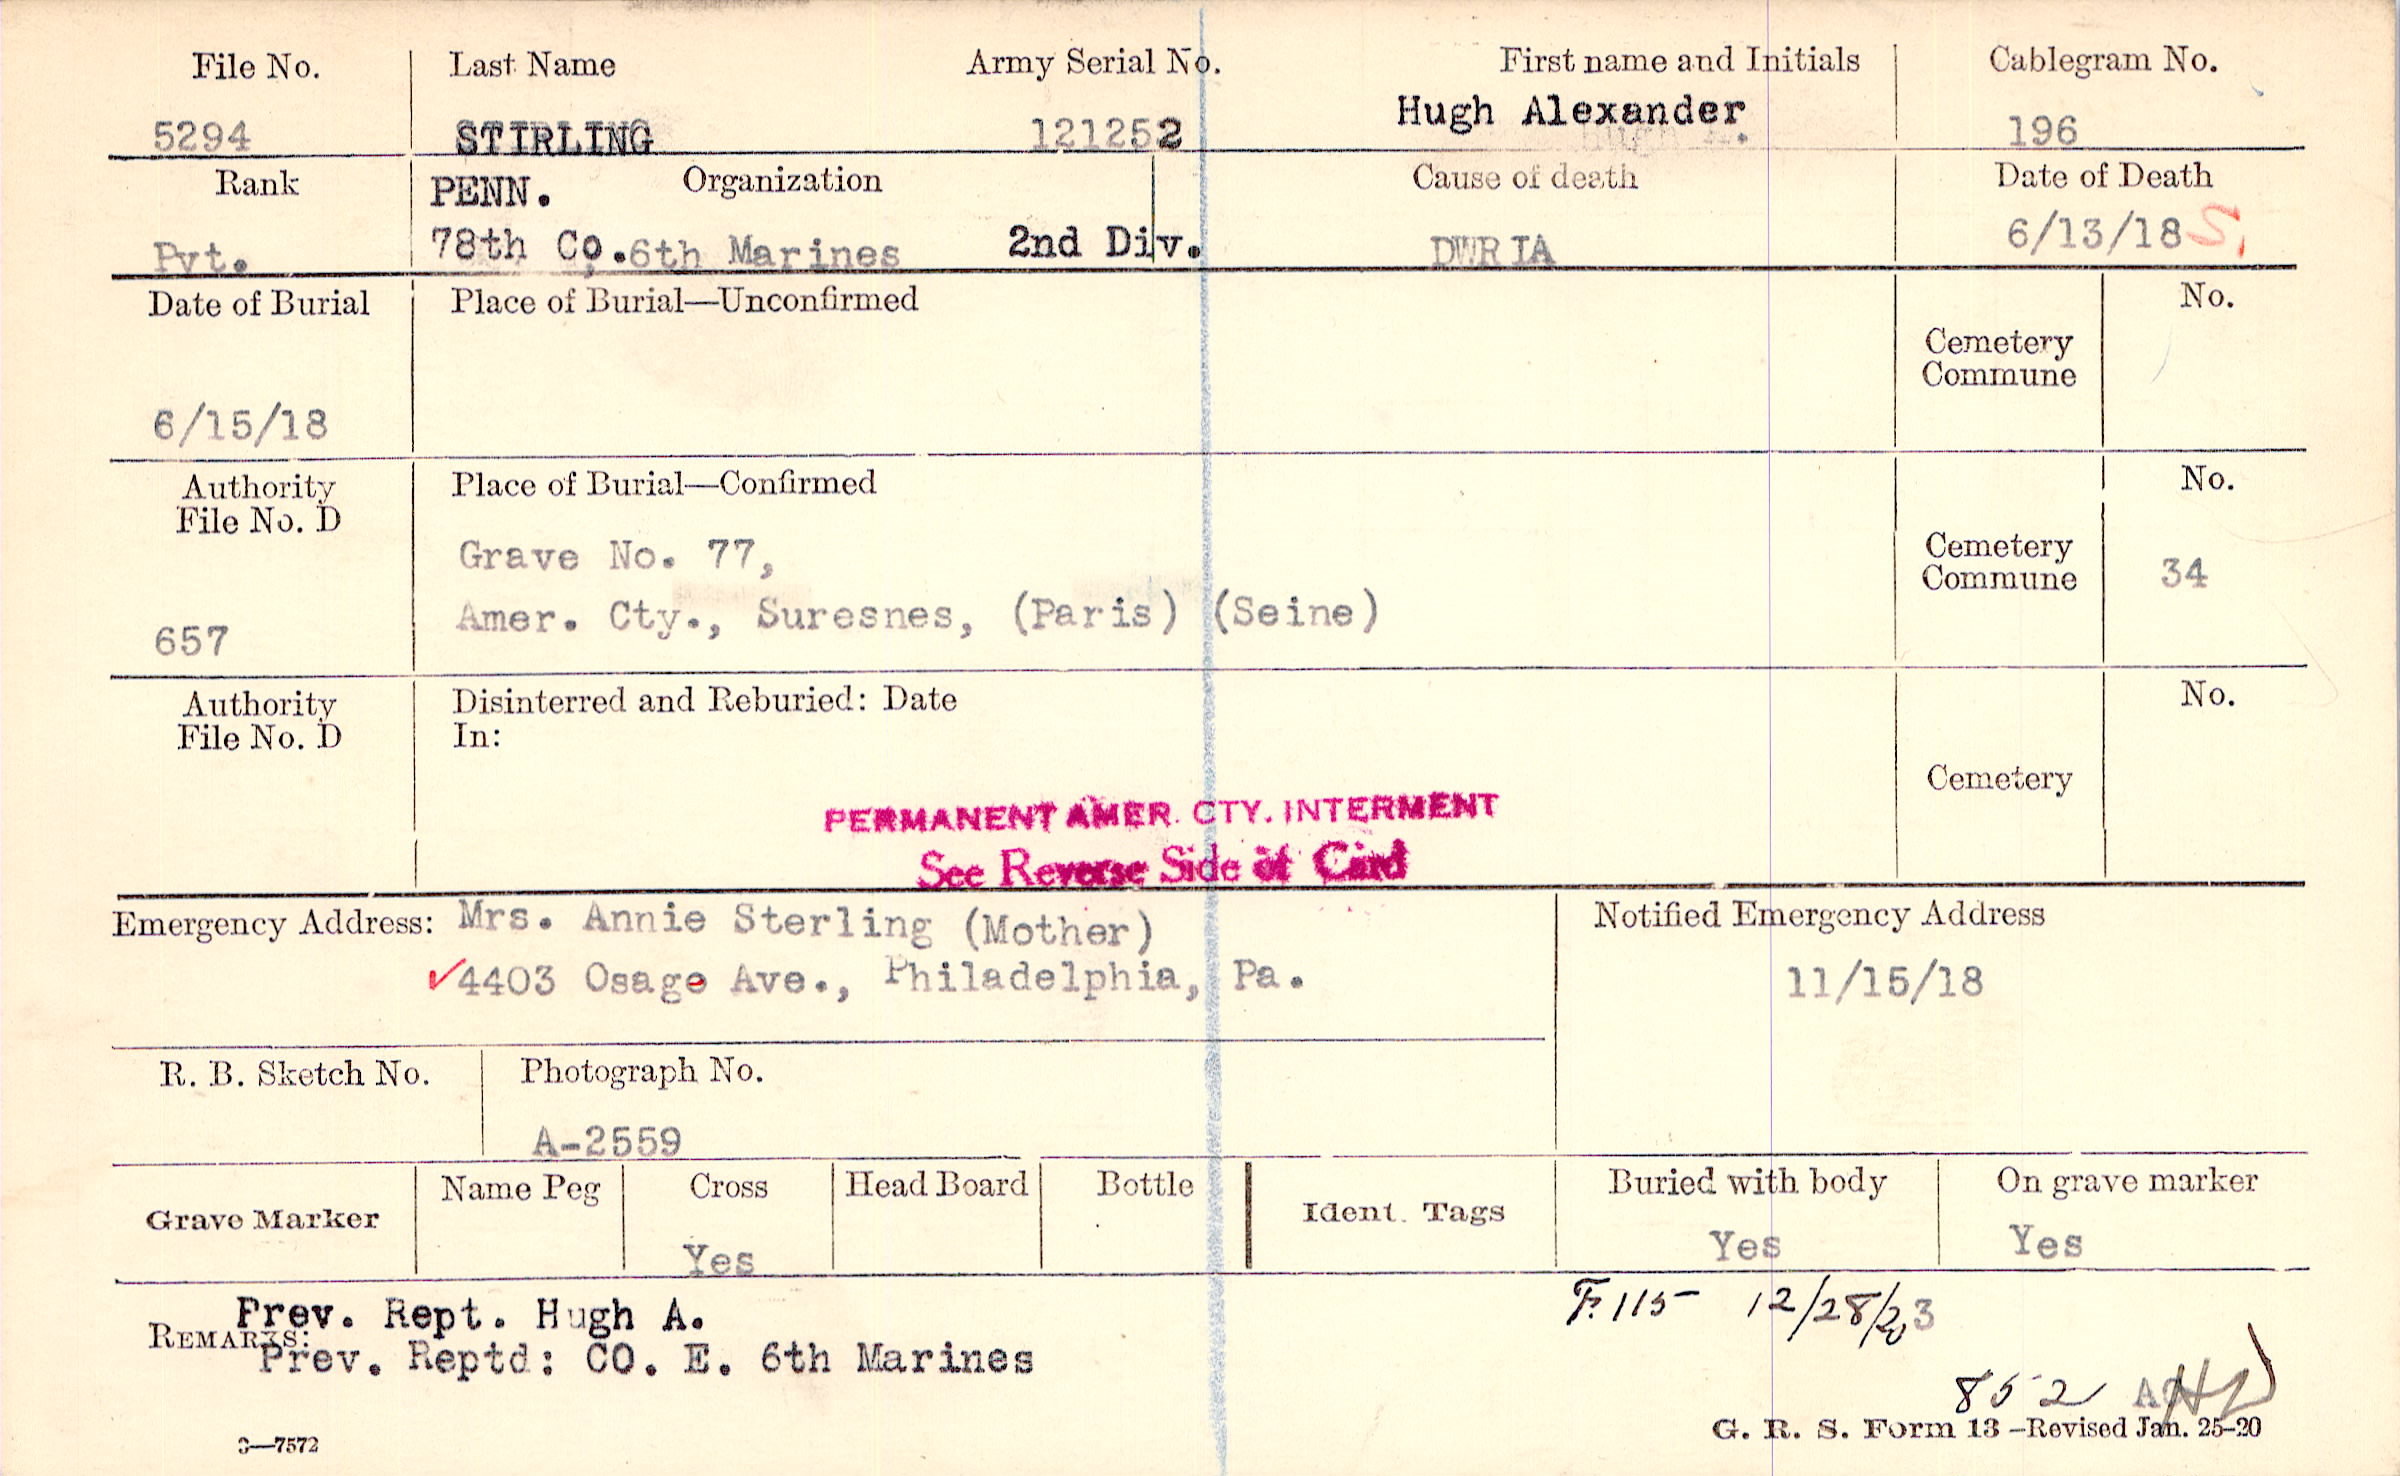 File No. Last Name Army Serial No. First name and Initials Cablegram No.
5294 STIRLING 121252 Hugh Alexander 196
Rank PENN. Organization Cause of death Date of Death
Pvt. 78th Co. 6th Marines 2nd Div. DWRIA 6/13/18 S.
Date of Burial Place of Burial—Unconfirmed No.
Cemetery
Commune
6/15/18
Authority Place of Burial—Confirmed No.
File No. D
Grave No. 77, Cemetery
Commune 34
657 Amer. Cty., Suresnes, (Paris) (Seine)
Authority Disinterred and Reburied: Date No.
File No. D In:
Cemetery
PERMANENT AMER. CTY. INTERMENT
See Reverse Side of Card
Emergency Address: Mrs. Annie Sterling (Mother) Notified Emergency Address
4403 Osage Ave., Philadelphia, Pa. 11/15/18
R. B. Sketch No. Photograph No.
A-2559
Grave Marker Name Peg Cross Head Board Bottle Ident. Tags Buried with body On grave marker
Yes Yes Yes
Prev. Rept. Hugh A. F. 115 12/28/
REMARKS:
Prev. Reptd: CO. E. 6th Marines
852
G. R. S. Form 13—Revised Jan. 25-20
3—7572